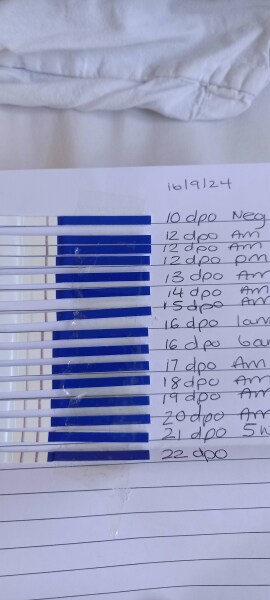 16/9/24
10 dpo Neg
12 dpo Am
12 dpo Am
12 dpo pm
13 dpo Am
14 dpo Am
15 dpo Am
16 dpo 1am
16 dpo 6am
17 dpo Am
18 dpo Am
19 dpo Am
20 dpo Am
21 dpo
22 dpo